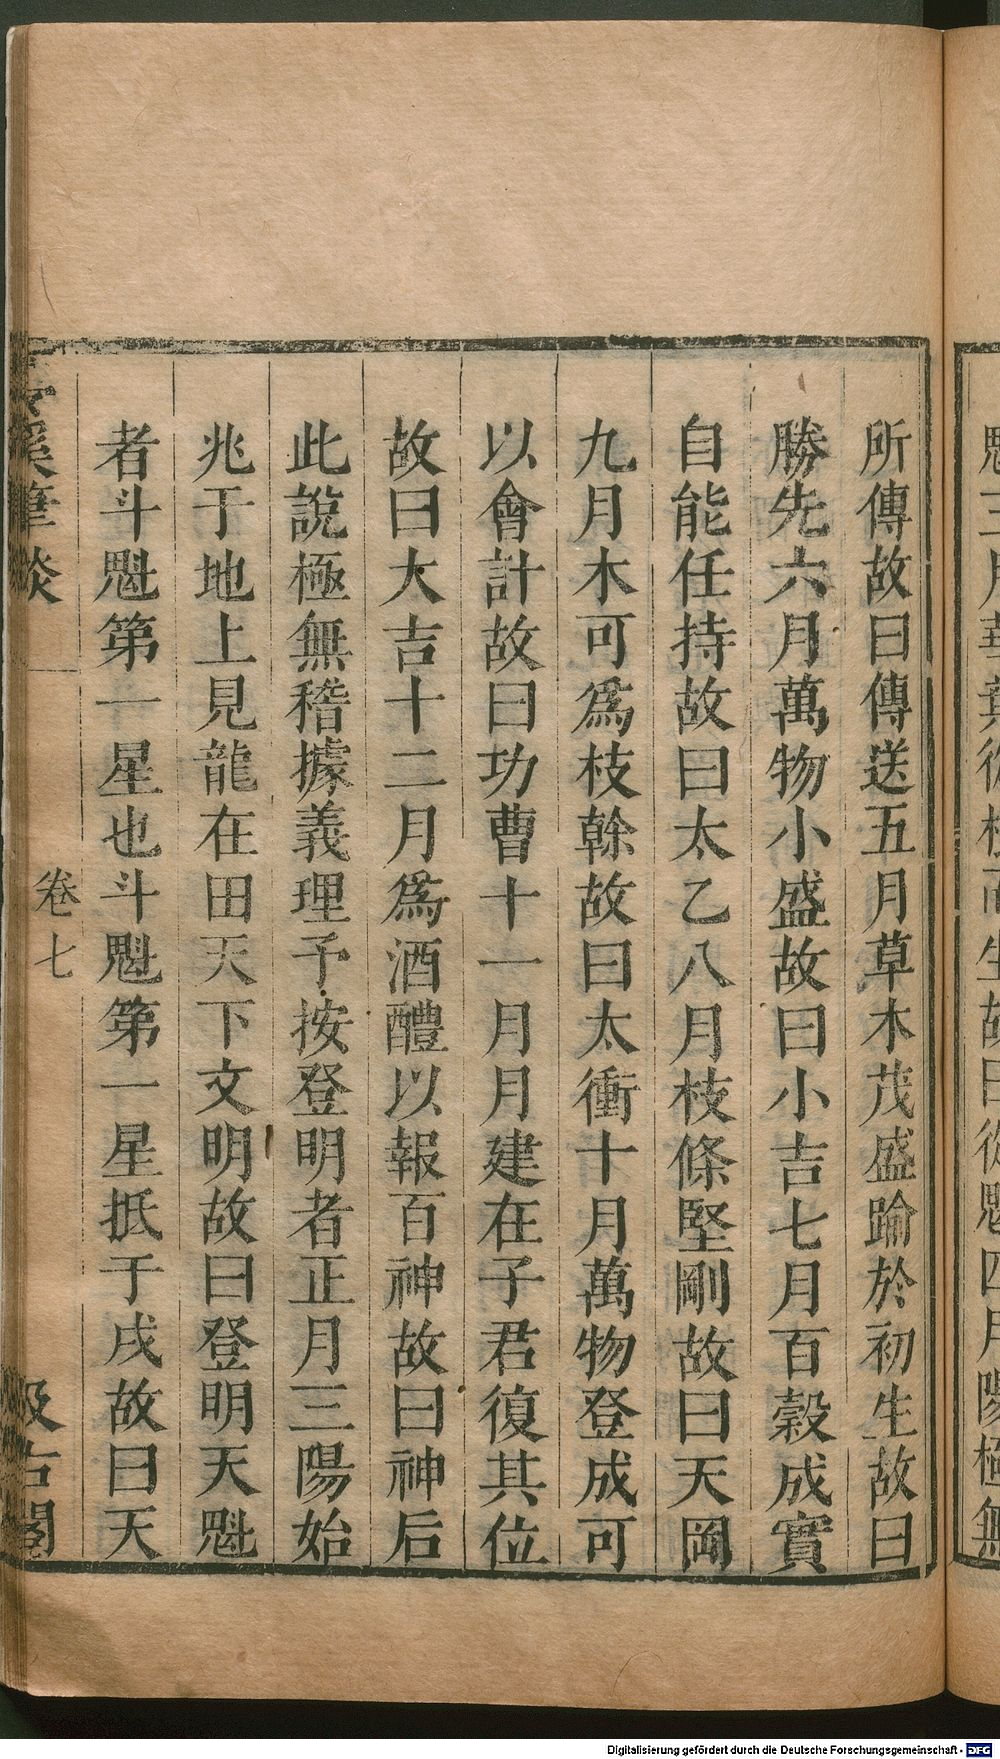 所傳故曰傳送五月草木茂盛踰於初生故曰
勝先六月萬物小盛故曰小吉七月百穀成實
自能任持故曰太乙八月枝條堅剛故曰天岡
九月木可爲枝幹故曰太衝十月萬物登成可
以會計故曰功曹十一月月建在子君復其位
故曰大吉十二月爲酒醴以報百神故曰神后
此說極無稽據義理予按登明者正月三陽始
兆于地上見龍在田天下文明故曰登明天魁
者斗魁第一星也斗魁第一星抵于戌故曰天
溪筆談
卷七
汲古閣
月華葉從根而生故曰從魁四月陽極無
Digitalisierung gefördert durch die Deutsche Forschungsgemeinschaft - DFG